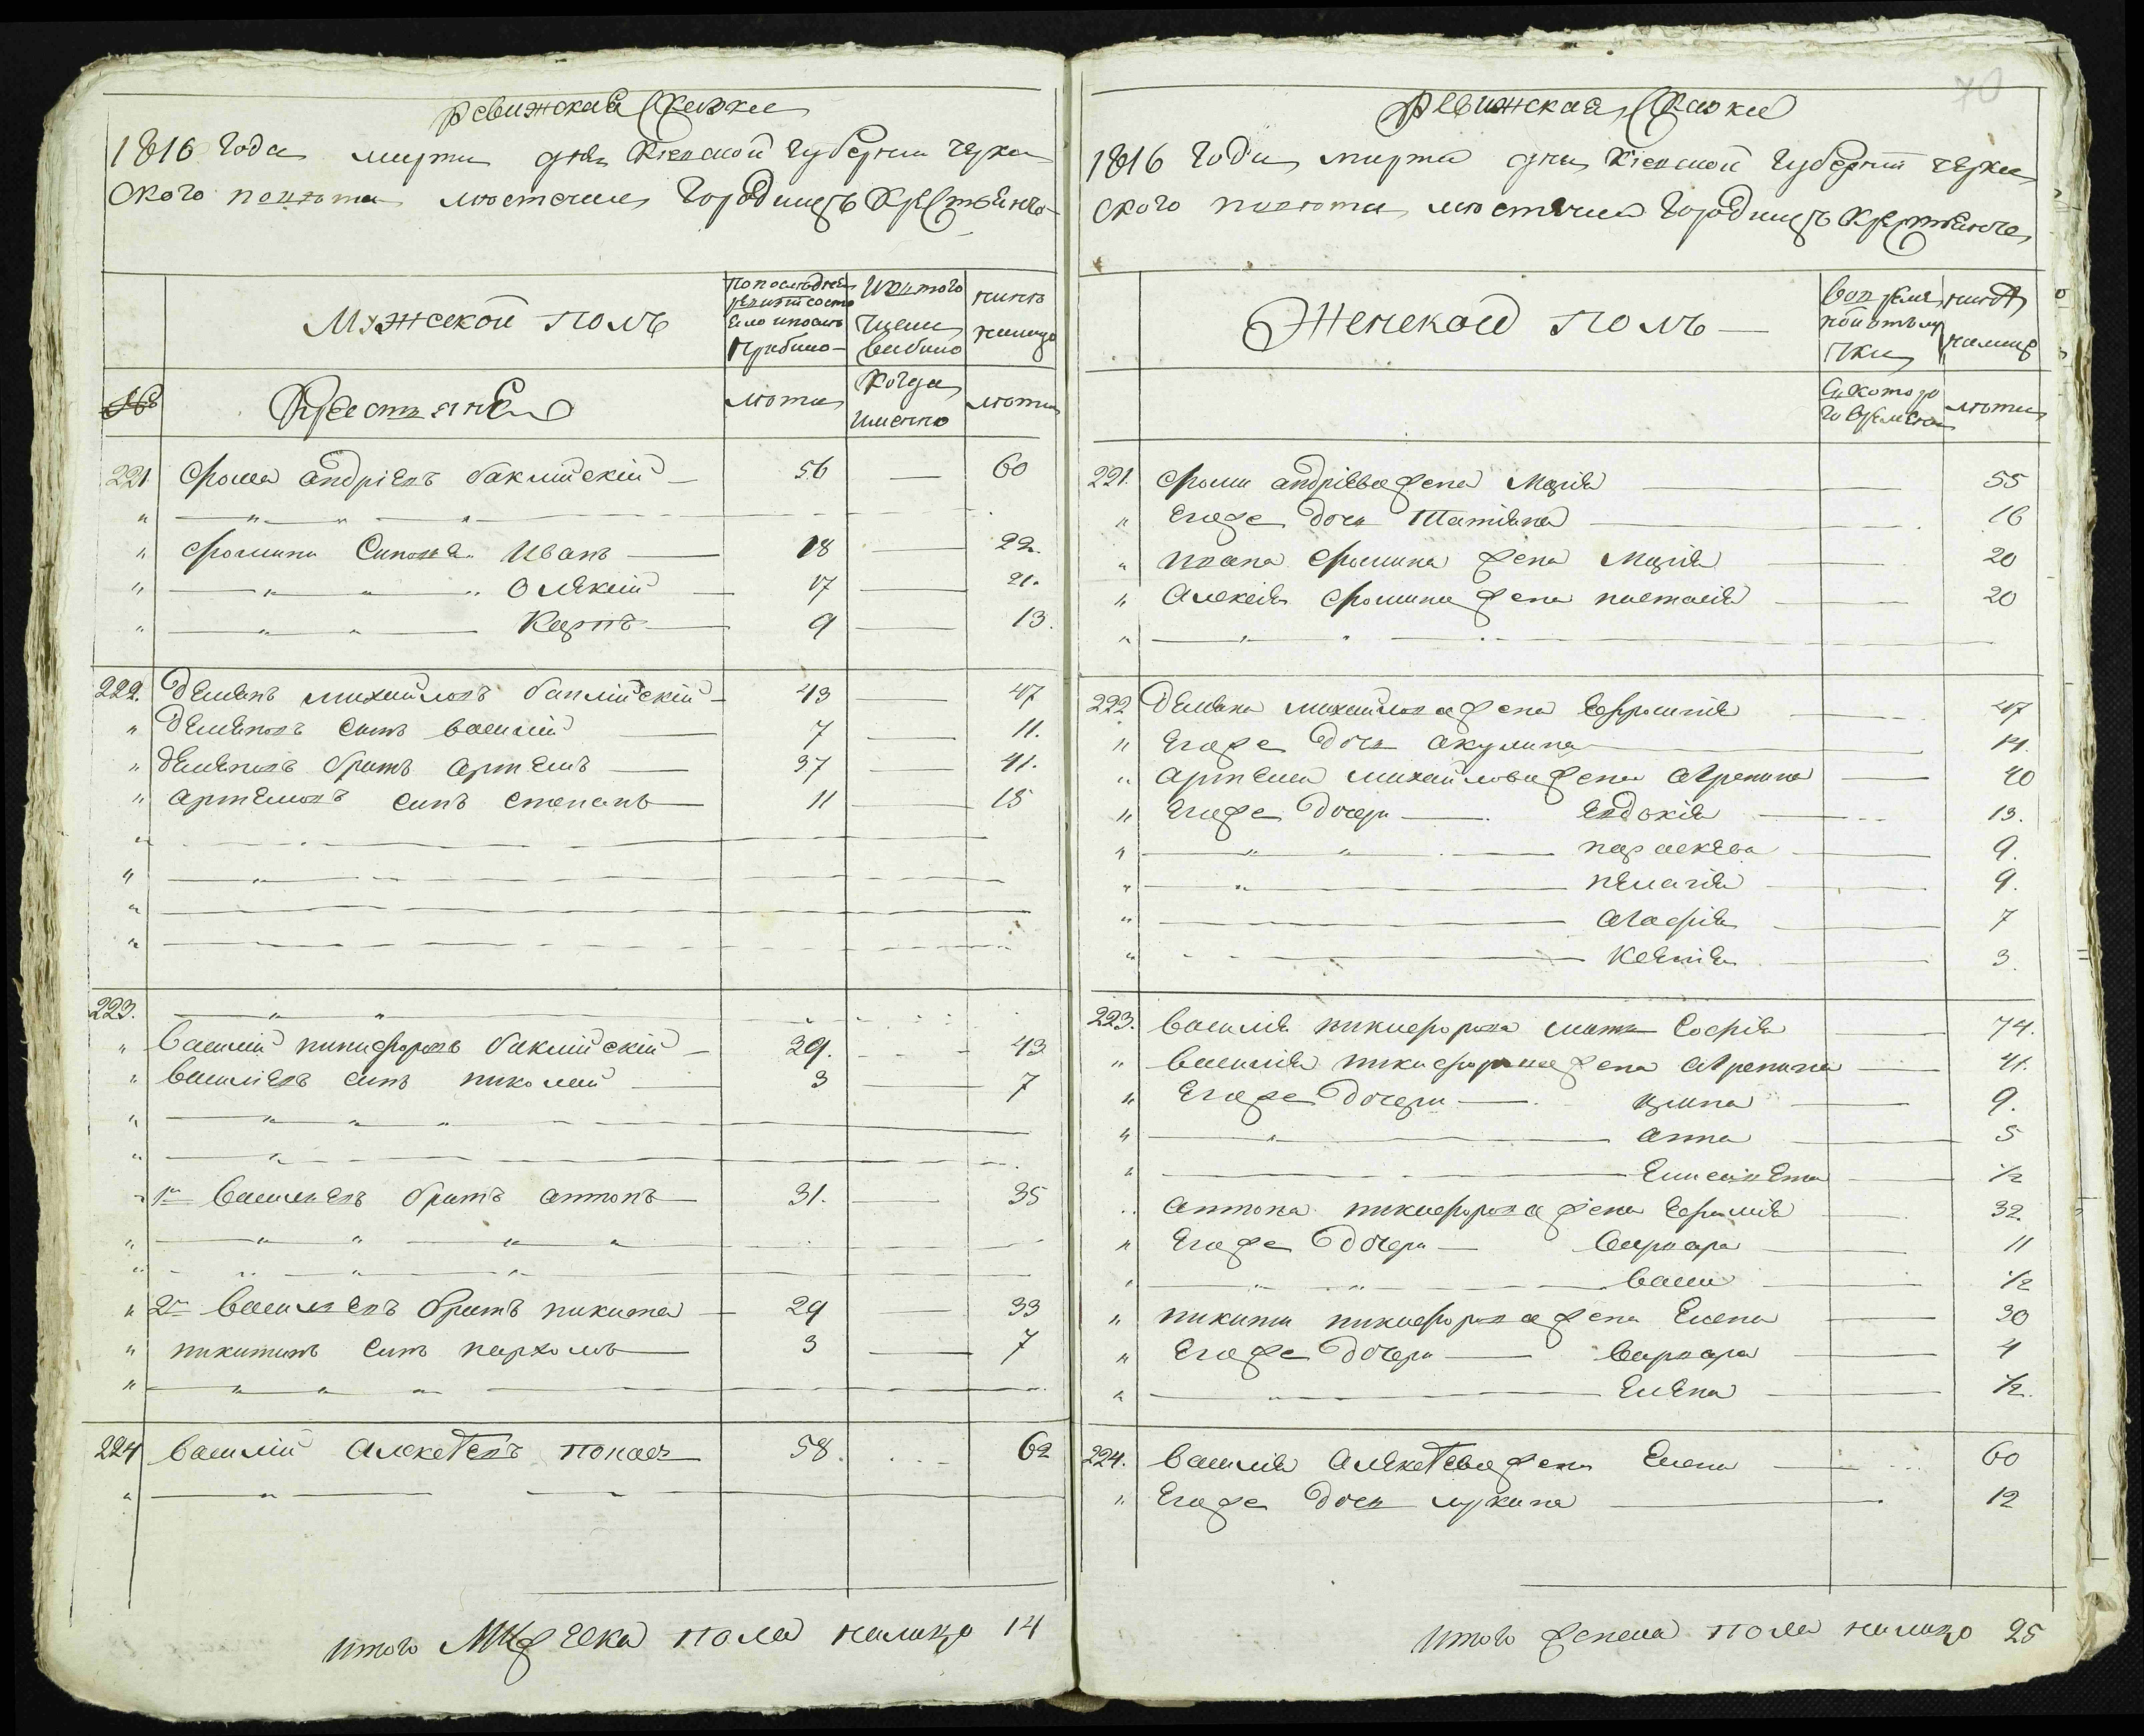 Ревижская Скаска
1816 года марта дня Киевской губернии Черка
ского повѣта мѣстечка Городищъ Крестьянъ
Мужеской полъ
По последней ревизіи состо яло и после прибыло
Изъ того числа выбыло
нинѣ налицо
№
Крестьяне
лѣта
Когда имянно
лѣта
221 Фома андріевъ баклицскій — 56 — 60
" — " — " — "
" Фомини Синовья Иванъ — 18 — 22.
" — " — " — " Олѣксій — 17 — 21.
" — " — " — Карпъ — 9 — 13.
222. Демянъ михайловъ баклійскій — 43 — 47
" Демяновъ синъ василій — 7 — 11.
" Демяновъ братъ артемъ — 37 — 41.
" артемовъ синъ степанъ — 11 — 15
"
" — "
"
"
223. — " — "
" василій никифоровъ баклійскій — 39. — 43
" василіевъ синъ николай — 3 — 7
" — " — " — "
" — "
" 1й василіевъ братъ антонъ — 31. — 35
" — " — " — " — "
" — " — " — "
" 2й василіевъ братъ никита — 29 — 33
" никитинъ синъ пархомъ — 3 — 7
" — " — " — "
224 василій алексѣевъ 58. — 62
" — "
Итого Мужеска пола налицо 14
70
Ревижская Скаска
1816 года марта дня Киевской губерніи Черка
ского повѣта мѣстечка Городищъ Крестьяне
Женской полъ —
Во временной отлучки
нинѣ налицо
Съ которого времени
лѣта
221. Фоми андріева жена Марія — 55
" Его же дочь Татіяна — 16
" Ивана Фомина жена Марія — 20
" Алексія Фомина жена настасія — 20
" — " — "
222 Демяна михайлова жена Евфросинія — 47
" Его же дочь акулина — 14.
" артема михайлова жена агрепина — 40
" Его же дочери — Евдокія — 13.
" — " — " — параскева — 9.
" — " — пелагія — 9.
" — агафія — 7
" — Ксенія — 3.
223. василія никифорова мать Софія — 74.
" василія никифорова жена агрепина — 41.
" Его же дочери — ирина — 9.
" — " — анна — 5
" — Елисавета — ½
" антона никифорова жена Ефимія — 32.
" Его же дочери — варвара — 11
" — " — " — васса — ½
" никити никифорова жена Елена — 30
" Его же дочери — варвара — 4
" — " — Елена — ½.
224. василія алексѣева жена Елена — 60
" Его же дочь — 12
Итого женска пола налицо 25